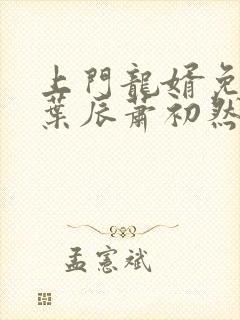 上門龍婿免
葉辰蕭初然
孟憲斌